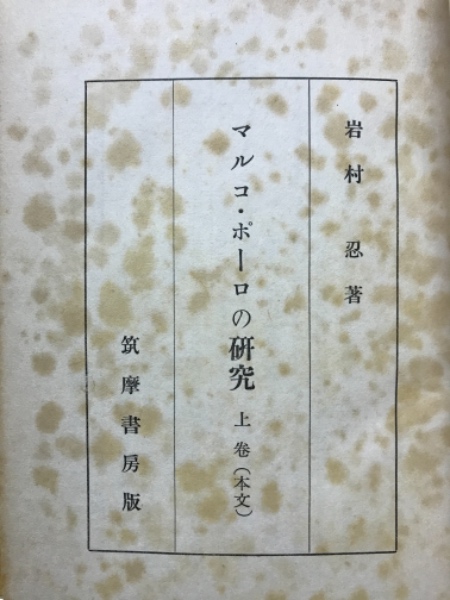 岩村忍著
マルコ・ポーロの研究 上巻(本文)
筑摩書房版